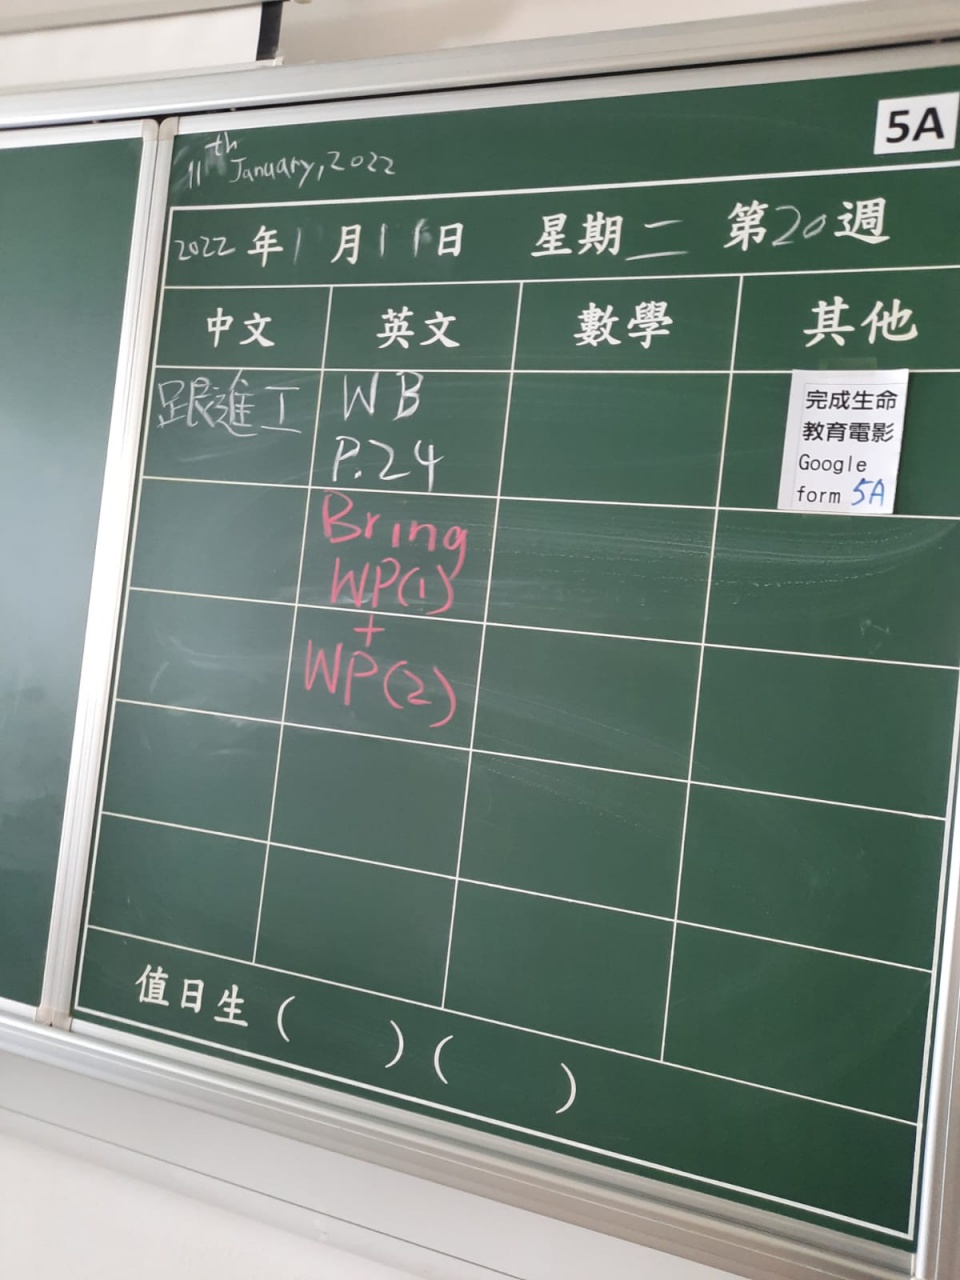 5A
11th January, 2022
2022年1月11日 星期二 第20週
中文 英文 數學 其他
跟進工
WB
P.24
Bring
WP(1)
+
WP(2)
完成生命
教育電影
Google
form 5A
值日生 ( ) ( )